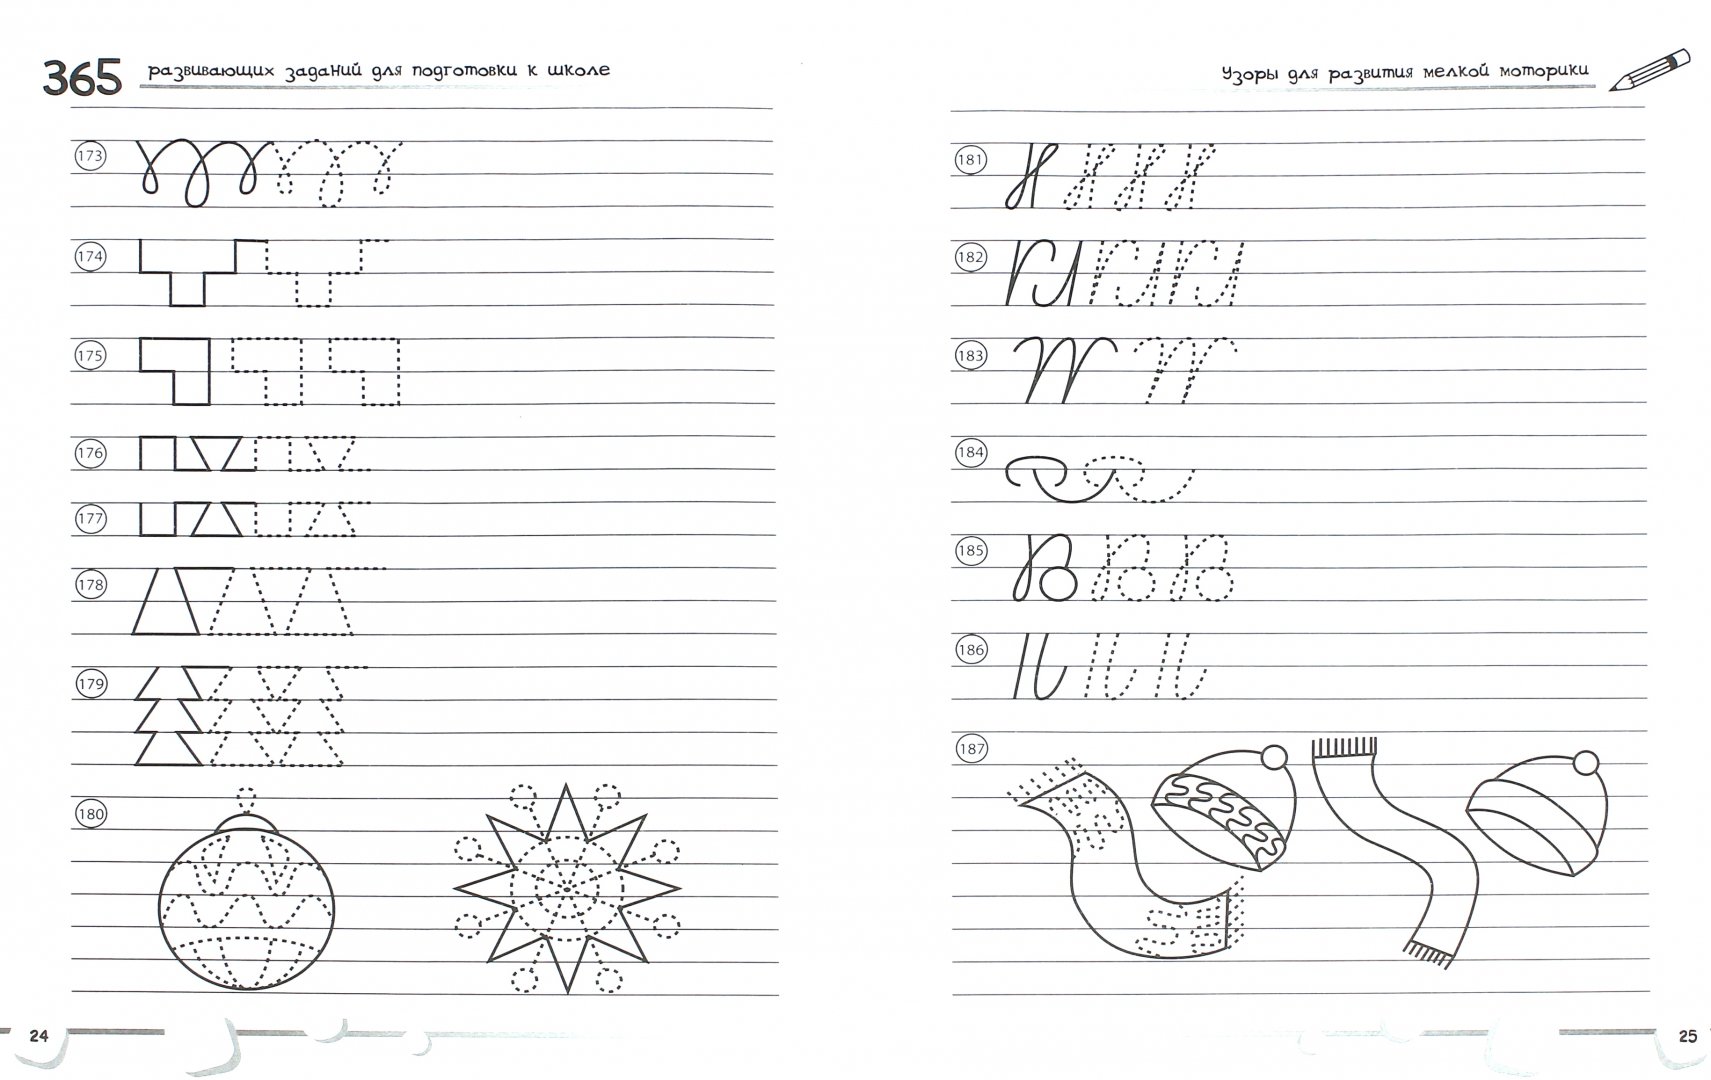 365 развивающих заданий для подготовки к школе
173
174
175
176
177
178
179
180
24
Узоры для развития мелкой моторики
181
182
183
184
185
186
187
25